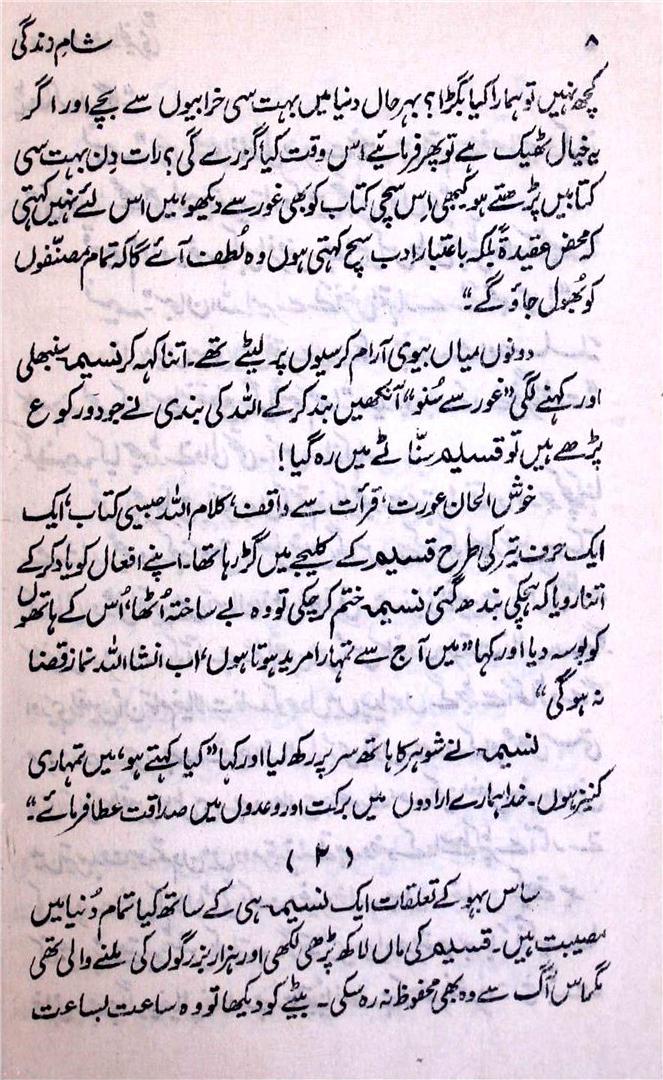 ۸ شامِ زندگی
کچھ نہیں تو ہمارا کیا بگڑا؟ بہرحال دنیا میں بہت سی خرابیوں سے بچے اور اگر
یہ خیال ٹھیک ہے تو پھر فرمائیے اس وقت کیا گزرے گی؟ رات دِن بہت سی
کتابیں پڑھتے ہو کبھی اِس سچی کتاب کو بھی غور سے دیکھو، میں اس لئے نہیں کہتی
کہ محض عقیدۃً بلکہ باعتبار ادب سچ کہتی ہوں وہ لُطف آئے گا کہ تمام مصنّفوں
کو بُھول جاؤ گے۔"
دونوں میاں بیوی آرام کرسیوں پر لیٹے تھے۔ اتنا کہہ کر نسیمہ سنبھلی
اور کہنے لگی "غور سے سُنو" آنکھیں بند کر کے اللہ کی بندی نے جو دو رکوع
پڑھے ہیں تو قسیم سنّاٹے میں رہ گیا!
خوش الحان عورت، قرأت سے واقف، کلام اللہ جیسی کتاب، ایک
ایک حرف تیر کی طرح قسیم کے کلیجے میں گڑ رہا تھا۔ اپنے افعال کو یاد کر کے
اتنا رویا کہ ہچکی بندھ گئی نسیمہ ختم کر چکی تو وہ بے ساختہ اُٹھا، اُس کے ہاتھوں
کو بوسہ دیا اور کہا "میں آج سے تمہارا مرید ہوتا ہوں، اب انشااللہ نماز قضا
نہ ہوگی"
نسیمہ نے شوہر کا ہاتھ سر پر رکھ لیا اور کہا "کیا کہتے ہو، میں تمہاری
کنیز ہوں۔ خدا ہمارے ارادوں میں برکت اور وعدوں میں صداقت عطا فرمائے۔"
(۲)
ساس بہو کے تعلقات ایک نسیمہ ہی کے ساتھ کیا تمام دُنیا میں
مصیبت ہیں۔ قسیم کی ماں لاکھ پڑھی لکھی اور ہزار بزرگوں کی ملنے والی تھی
مگر اس آگ سے وہ بھی محفوظ نہ رہ سکی۔ بیٹے کو دیکھا تو وہ ساعت بساعت